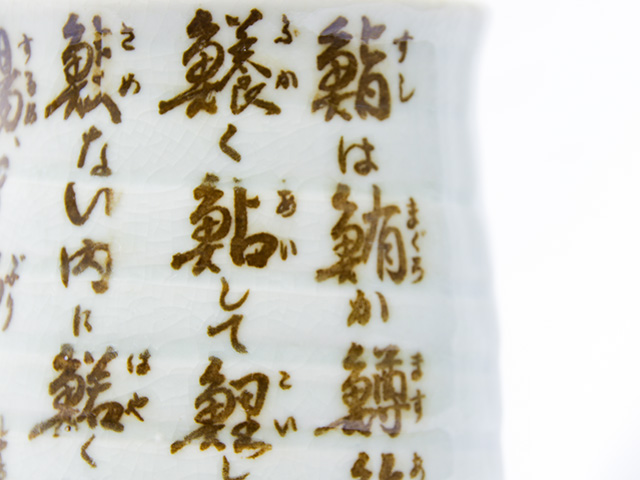 鮨は鮪か鱒
すし まぐろ ます あ
鱶く鮎して鯉し
ふか あい こい
鮫ない内に く
さめ はや